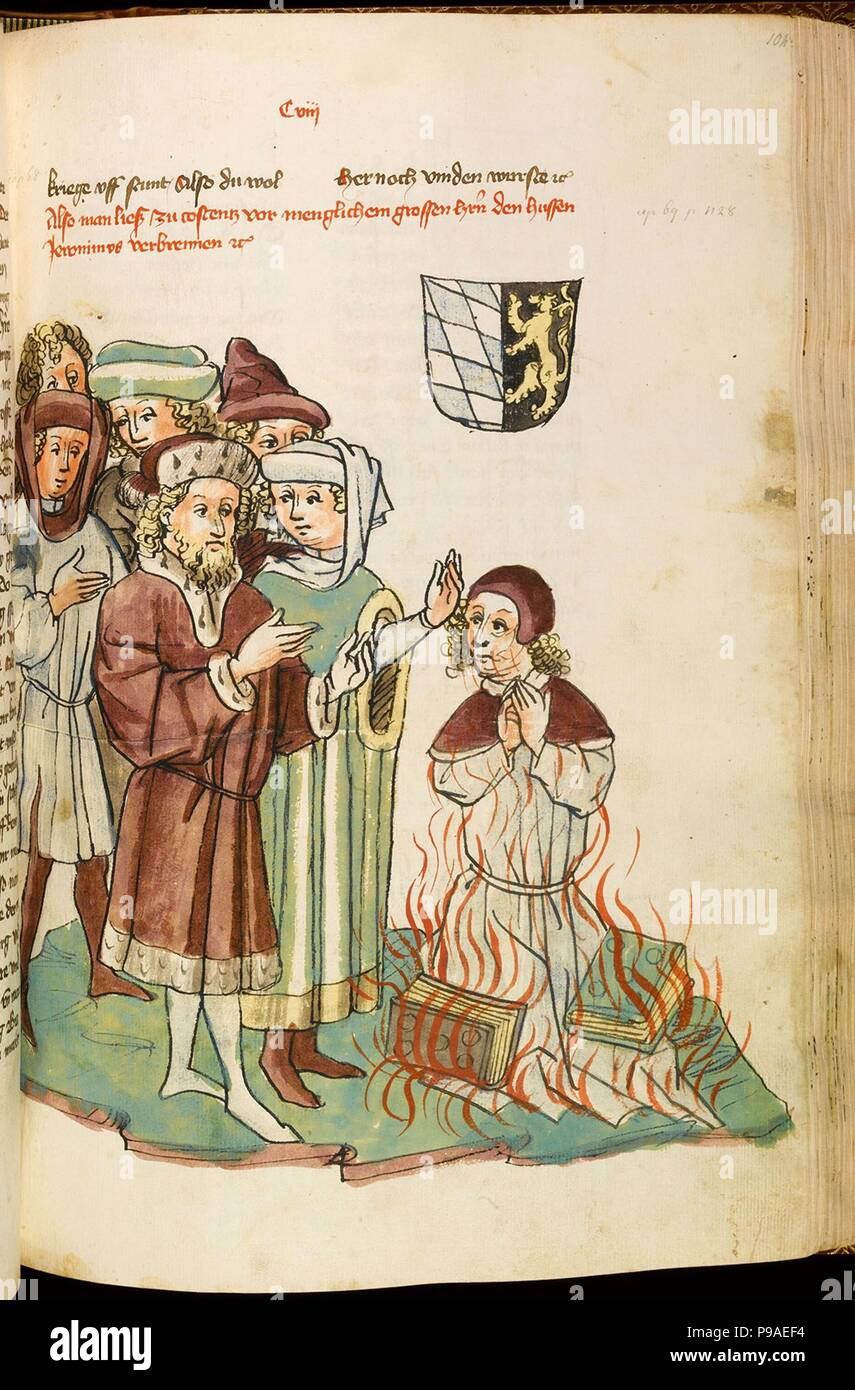 104
Cviij
kriege vff stunt Also du wol
her noch vinden wurste ꝛc
Also man ließ zu costentz vor menglichem grossen hrn̄ den hussen
Jeronimos verbrennen ꝛc
cap 69 p 1128
alamy stock photo
alamy
Image ID: P9AEF4
www.alamy.com